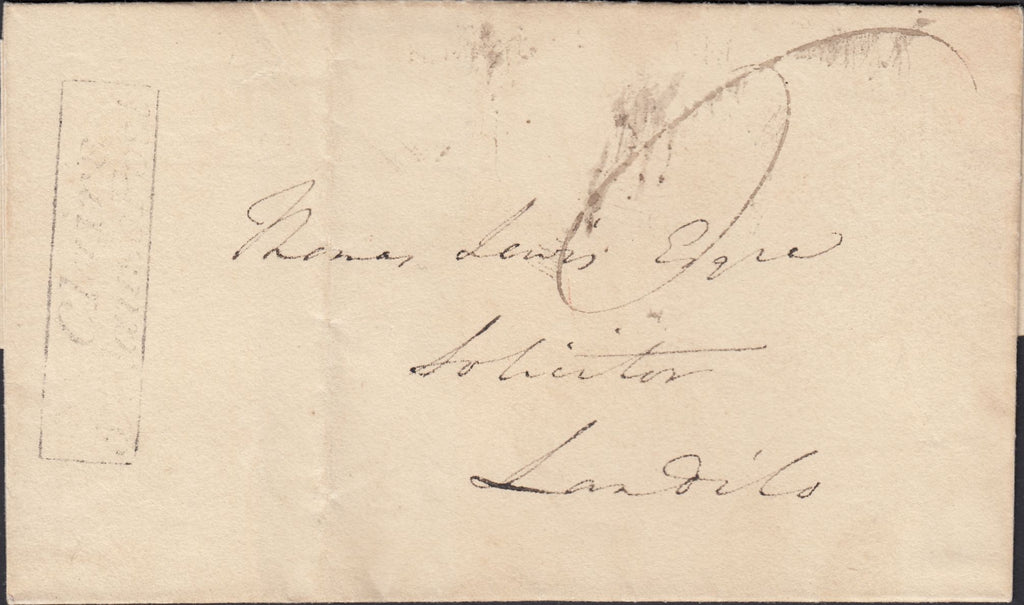 Thomas Lewis Esqre
Solicitor
Landilo